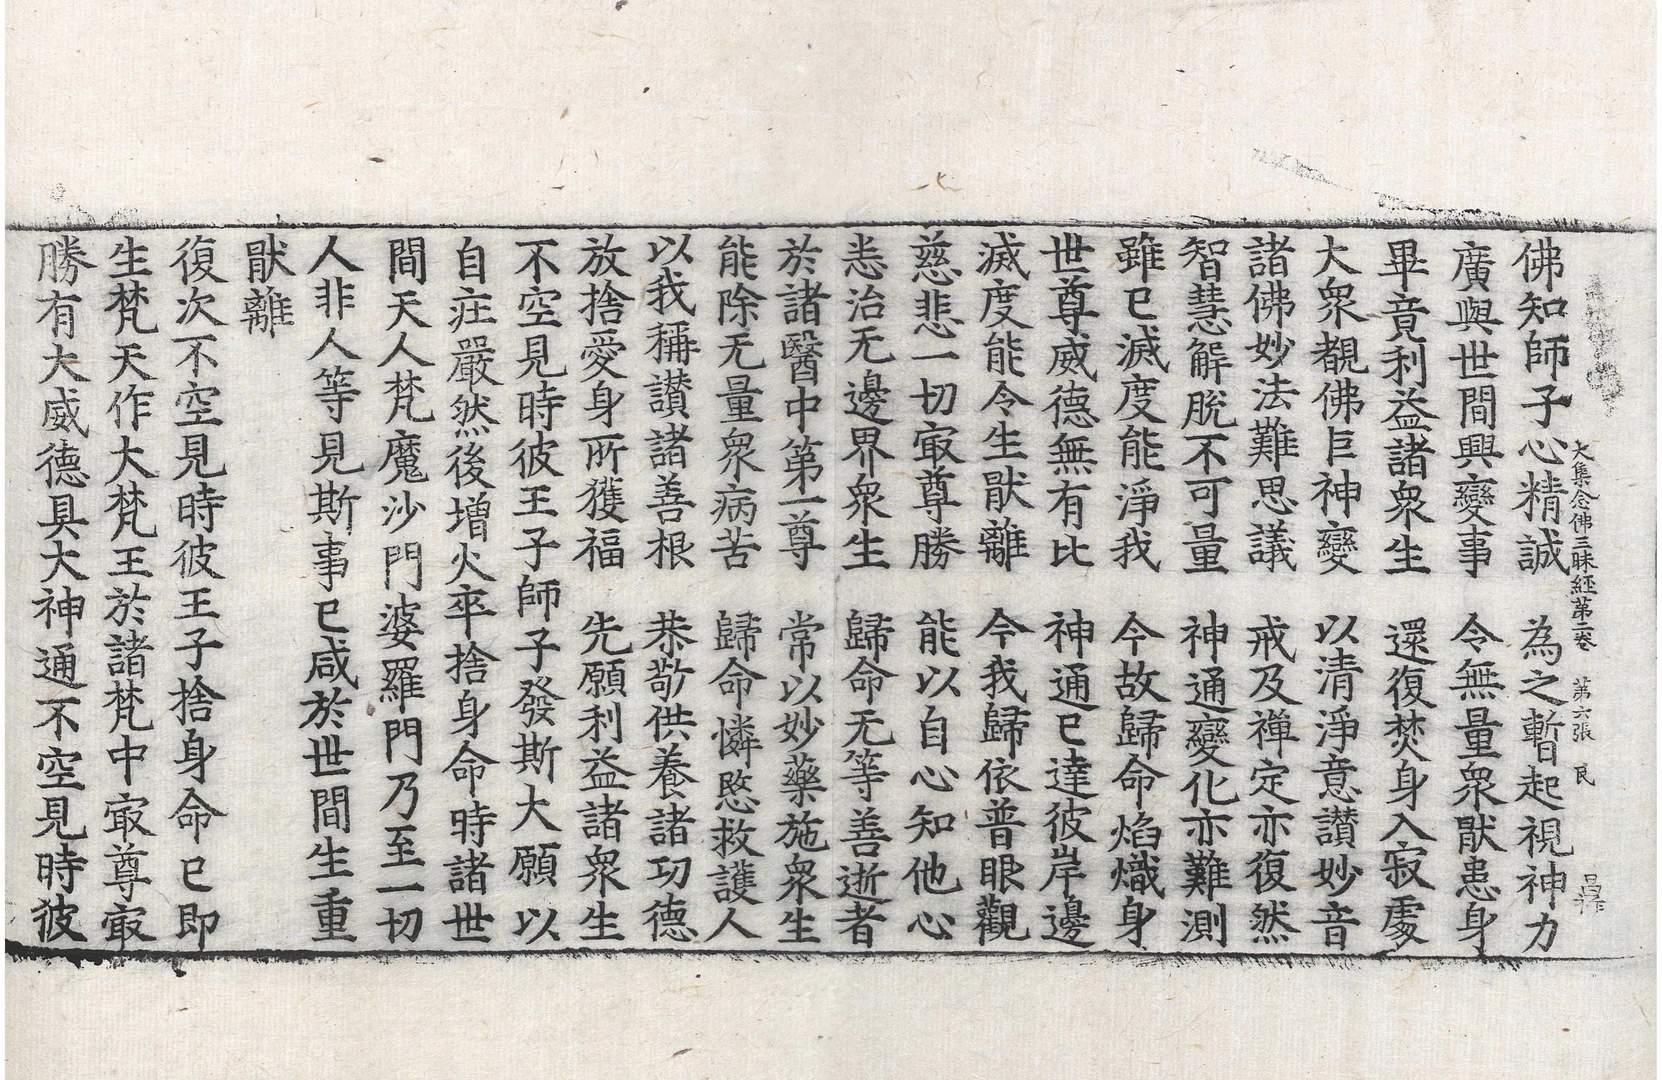 大集念佛三昧經第二卷 第六張 民
佛知師子心精誠 為之暫起視神力
廣與世間興變事 令無量衆猒患身
畢竟利益諸衆生 還復焚身入寂處
大衆覩佛巨神變 以清淨意讃妙音
諸佛妙法難思議 戒及禪定亦復然
智慧解脫不可量 神通變化亦難測
雖已滅度能淨我 今故歸命焰熾身
世尊威德無有比 神通已達彼岸邊
滅度能令生猒離 今我歸依普眼觀
慈悲一切冣尊勝 能以自心知他心
恙治无邊界衆生 歸命无等善逝者
於諸醫中第一尊 常以妙藥施衆生
能除无量衆病苦 歸命憐愍救護人
以我稱讃諸善根 恭敬供養諸功德
放捨愛身所獲福 先願利益諸衆生
不空見時彼王子師子發斯大願以
自庄嚴然後增火卒捨身命時諸世
間天人梵魔沙門婆羅門乃至一切
人非人等見斯事已咸於世間生重
猒離
復次不空見時彼王子捨身命已即
生梵天作大梵王於諸梵中冣尊冣
勝有大威德具大神通不空見時彼